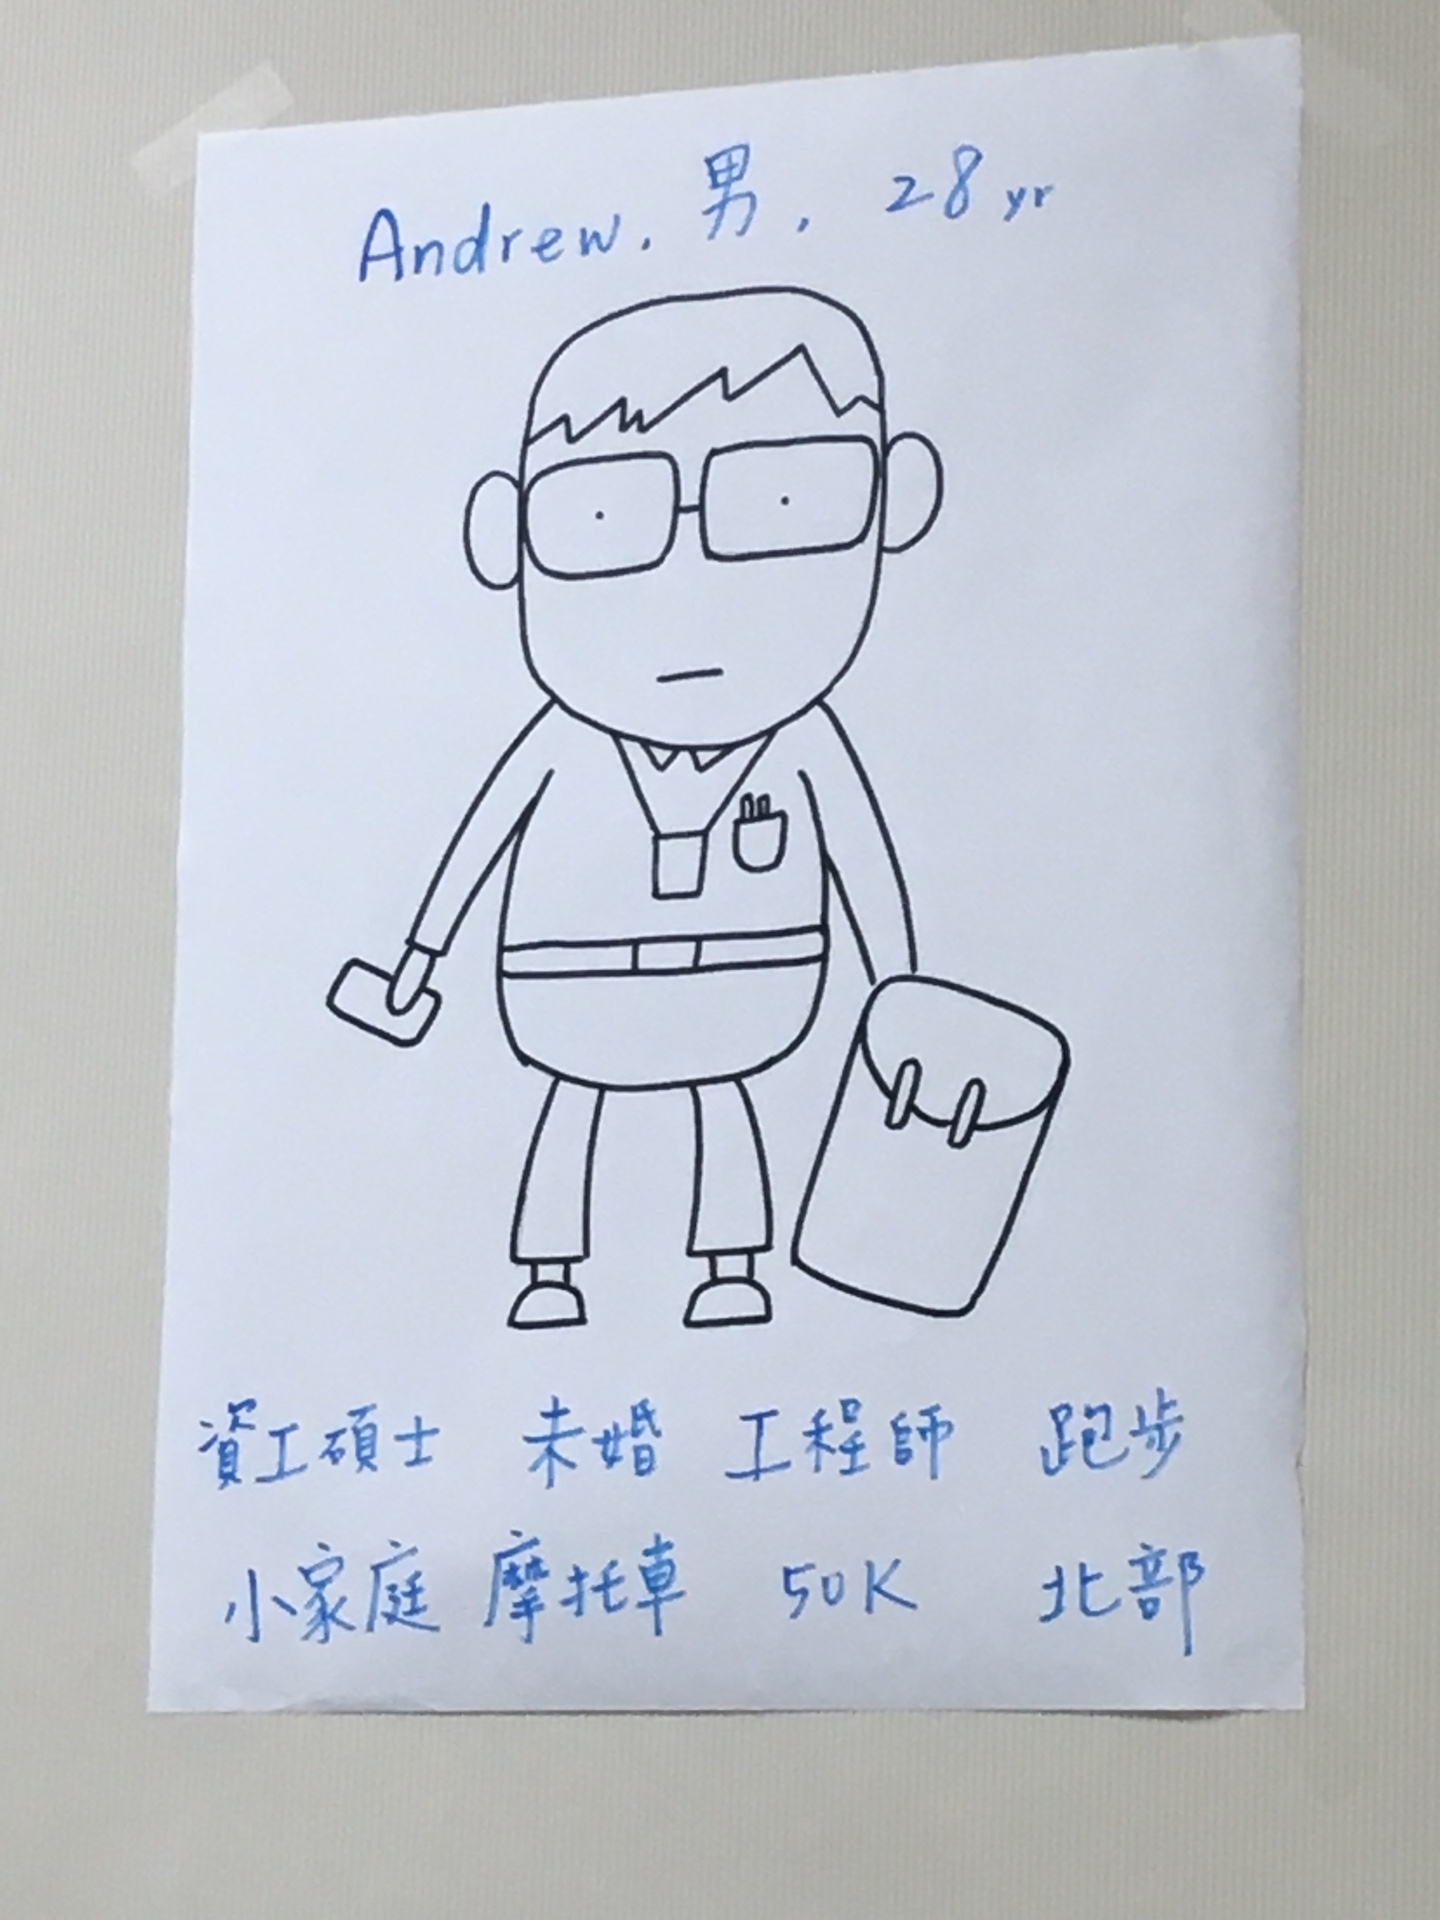 Andrew. 男, 28 yr
資工碩士 未婚 工程師 跑步
小家庭 摩托車 50K 北部